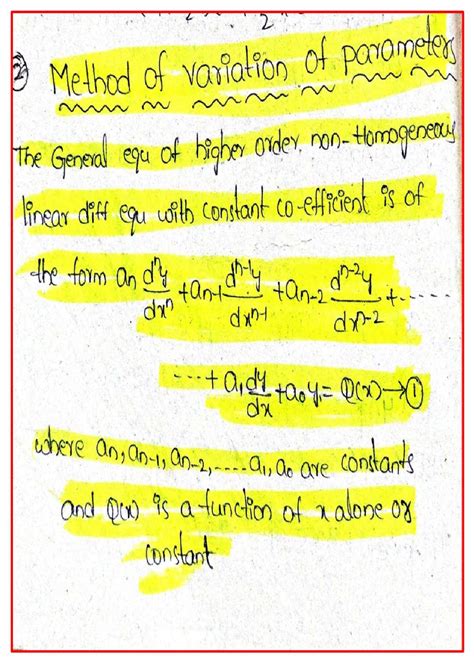 ② Method of variation of parameters
The General equ of higher order non-Homogeneous
linear diff equ with constant co-efficient is of
the form an dⁿy/dxⁿ + an-1 dⁿ⁻¹y/dxⁿ⁻¹ + an-2 dⁿ⁻²y/dxⁿ⁻² + ......
...+ a₁ dy/dx + a₀y = Q(x) → ①
where an, an-1, an-2, ..... a₁, a₀ are constants
and Q(x) is a function of x alone or
constant